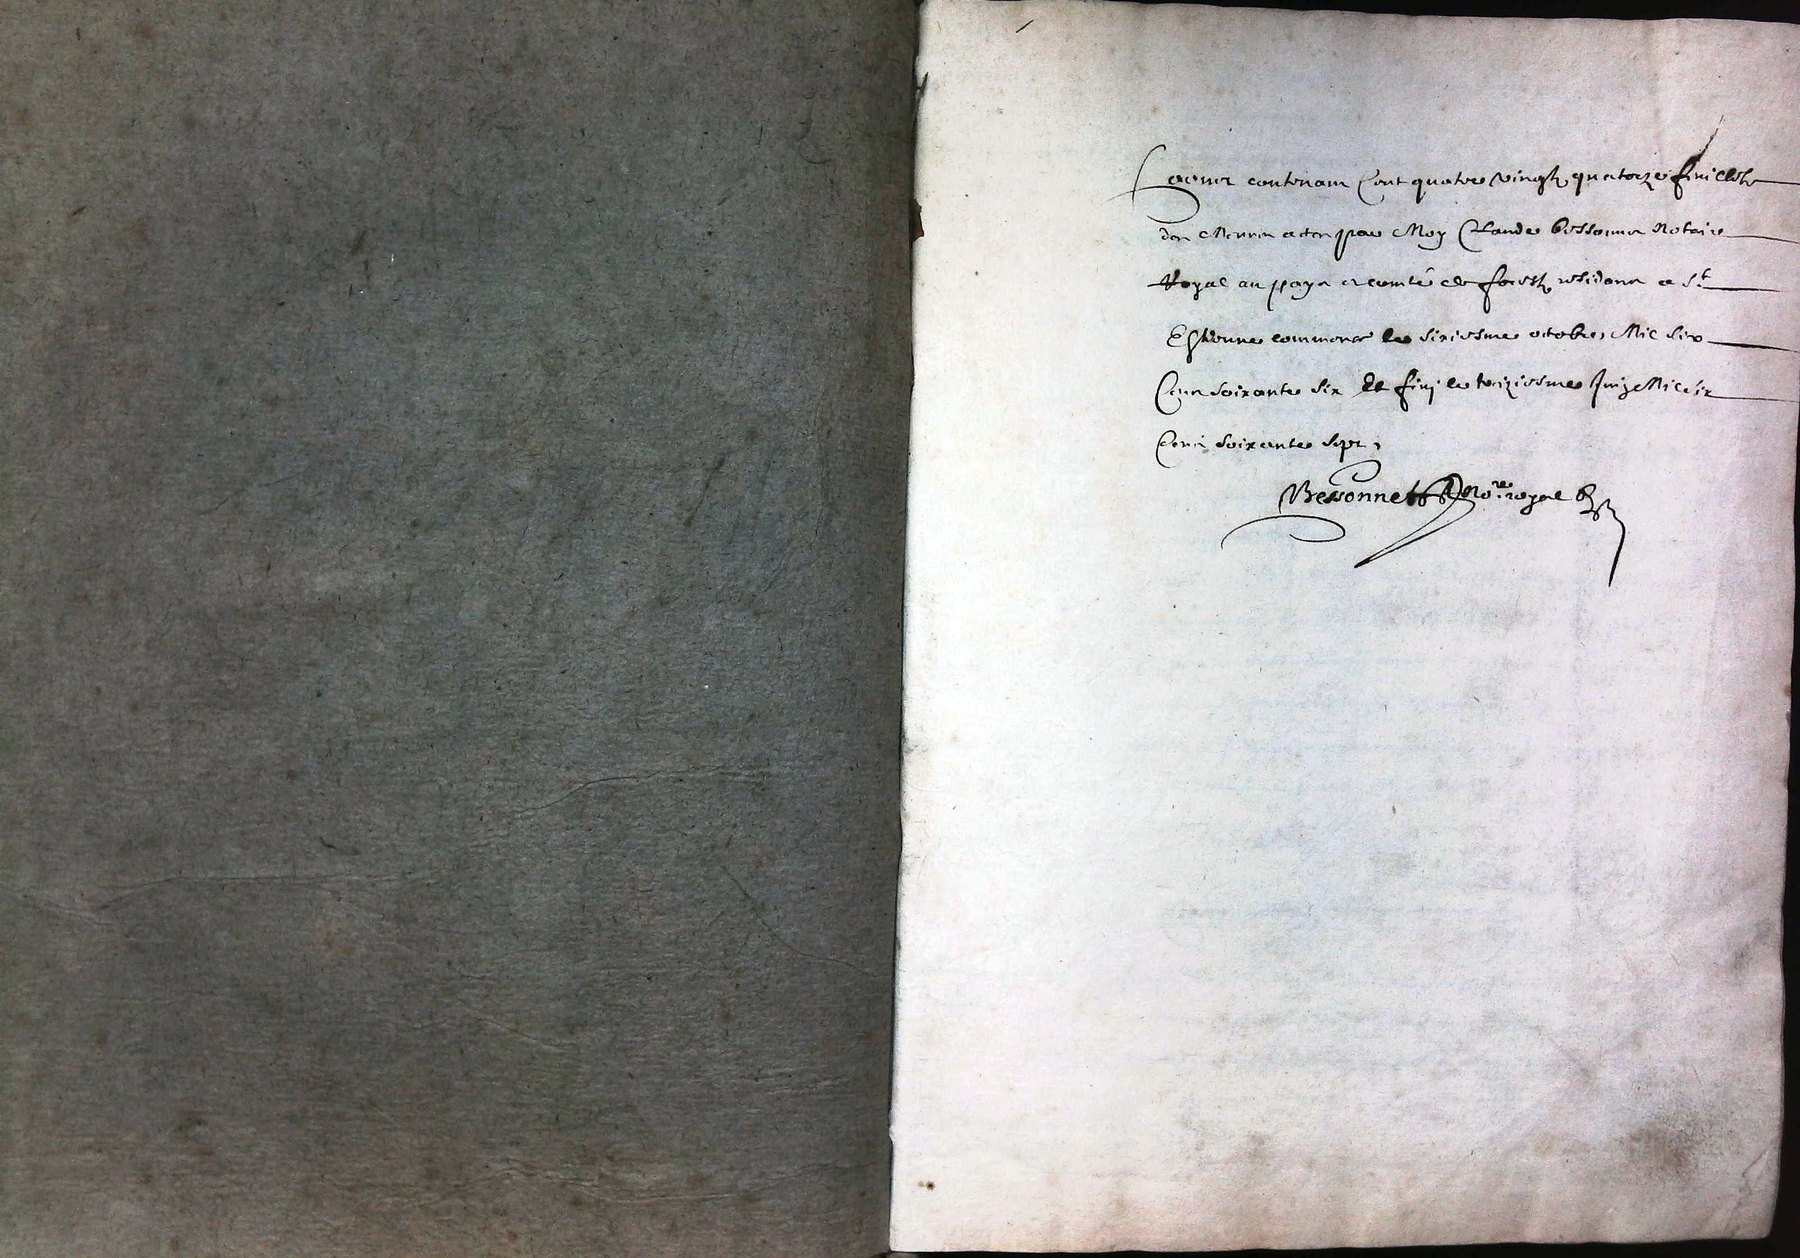 contenant Cent quatre vingtz quatorze feuilletz
des actes par Moy Claude bessonnet Notaire
Royal au pays et comté de forestz residant a St
Estienne commencé le sixiesme octobre Mil six
Cens soixante six et finj le treiziesme Juing Mil six
Cens soixante sept,
Bessonnet Nore. royal